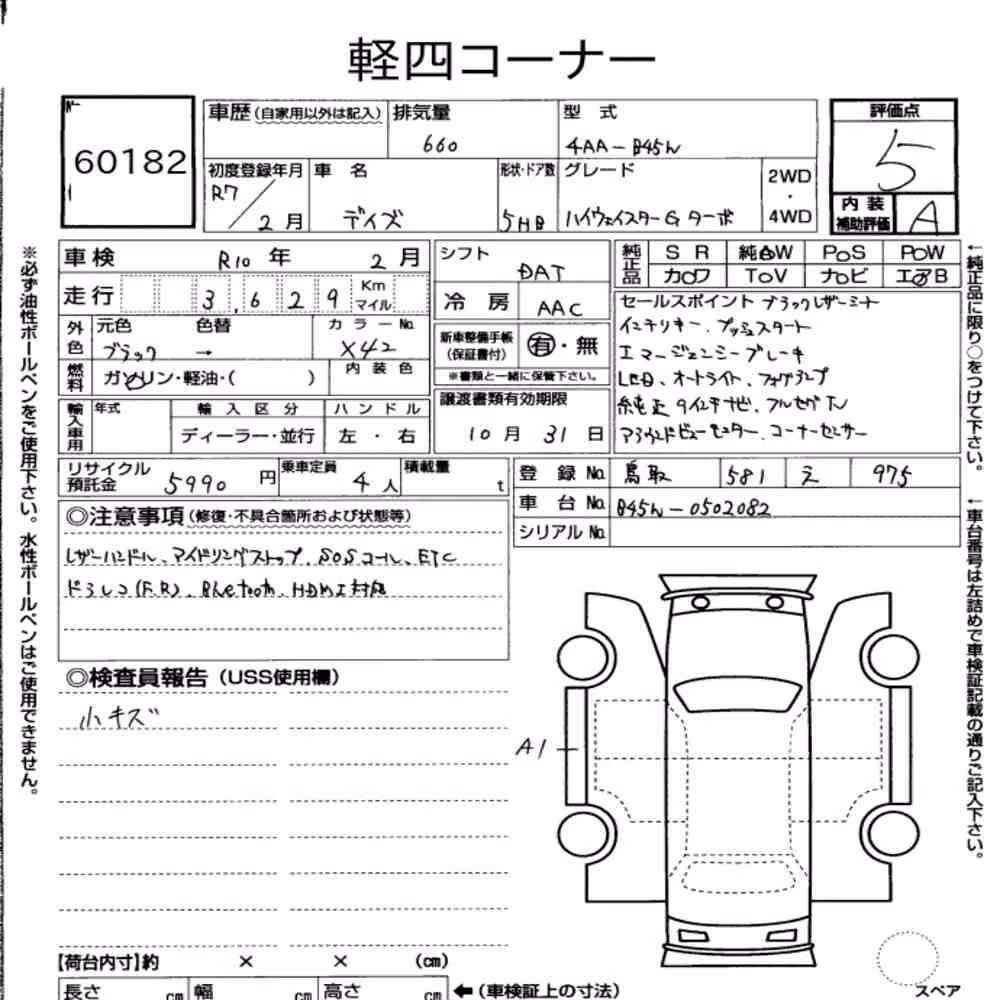 軽四コーナー
60182
車歴(自家用以外は記入) 排気量 型 式 評価点
660 4AA-B45W 5
初度登録年月 車 名 形状・ドア数 グレード 2WD・4WD
R7/2月 デイズ 5HB ハイウェイスターG ターボ
内装補助評価 A
車検 R10 年 2月 シフト DAT
走行 3,629 Km マイル 冷 房 AAC
外色 元色 色替 カラーNo.
ブラック → X42
新車整備手帳(保証書付) 有・無
※書類と一緒に保管下さい。
燃料 ガソリン・軽油・( ) 内 装 色
譲渡書類有効期限
10月 31日
輸入車用 年式 輸 入 区 分 ハ ン ド ル
ディーラー・並行 左 ・ 右
純正品 S R 純AW PoS PoW
カロワ ToV ナビ エアB
セールスポイント ブラックレザーシート
インテリキー、プッシュスタート
エマージェンシーブレーキ
LED、オートライト、フォグランプ
純正9インチナビ、フルセグTV
アラウンドビューモニター、コーナーセンサー
リサイクル預託金 5990 円 乗車定員 4人 積載量 t
登 録 No. 鳥取 581 え 975
車 台 No. B45W-0502082
シリアル No.
◎注意事項(修復・不具合箇所および状態等)
レザーハンドル、アイドリングストップ、SOSコール、ETC
ドラレコ(F.R)、Bluetooth、HDMI対応
◎検査員報告(USS使用欄)
小キズ
A1
【荷台内寸】約 × × (cm)
長さ cm 幅 cm 高さ cm ←(車検証上の寸法)
スペア
※必ず油性ボールペンをご使用下さい。水性ボールペンはご使用できません。
←純正品に限り○をつけて下さい。
←車台番号は左詰めで車検証記載の通りご記入下さい。